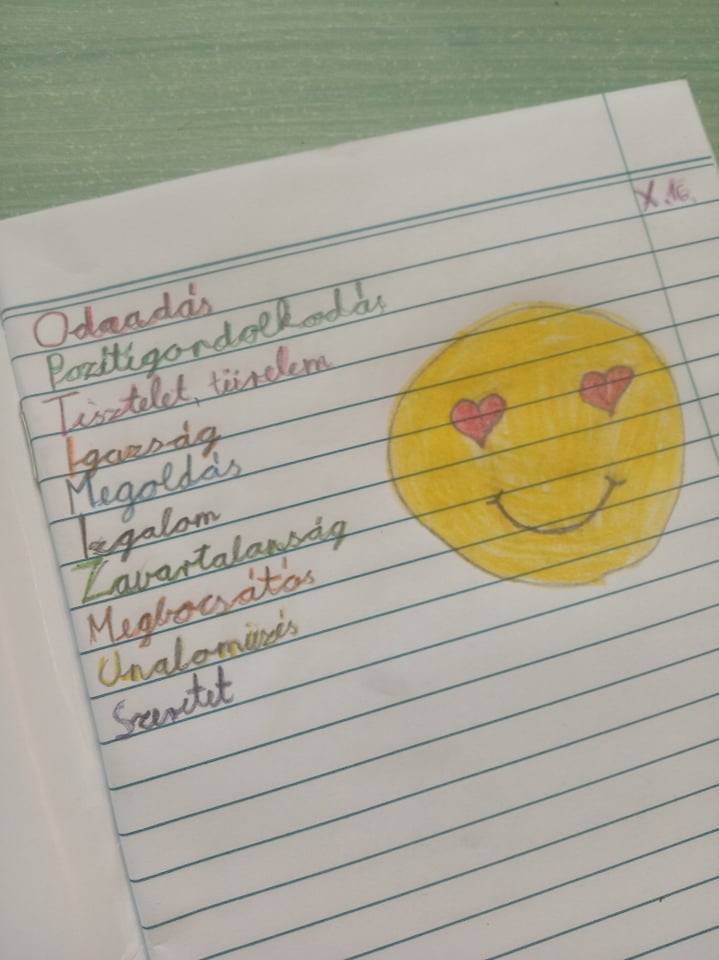 X.16.
Odaadás
Pozitigondolkodás
Tisztelet, türelem
Igazság
Megoldás
Izgalom
Zavartalanság
Megbocsátás
Unaloműzés
Szeretet